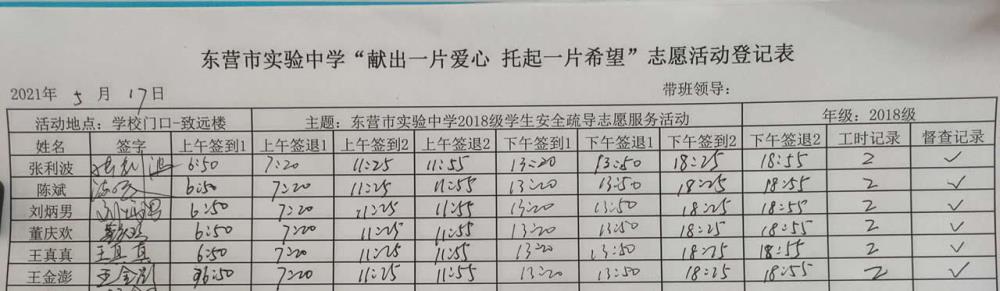 东营市实验中学“献出一片爱心 托起一片希望”志愿活动登记表
2021年 5 月 17日 带班领导:
活动地点：学校门口-致远楼 主题：东营市实验中学2018级学生安全疏导志愿服务活动 年级：2018级
姓名 签字 上午签到1 上午签退1 上午签到2 上午签退2 下午签到1 下午签退1 下午签到2 下午签退2 工时记录 督查记录
张利波 张利波 6:50 7:20 11:25 11:55 13:20 13:50 18:25 18:55 2 ✓
陈斌 陈斌 6:50 7:20 11:25 11:55 13:20 13:50 18:25 18:55 2 ✓
刘炳男 刘炳男 6:50 7:20 11:25 11:55 13:20 13:50 18:25 18:55 2 ✓
董庆欢 6:50 7:20 11:25 11:55 13:20 13:50 18:25 18:55 2 ✓
王真真 王真真 6:50 7:20 11:25 11:55 13:20 13:50 18:25 18:55 2 ✓
王金澎 王金澎 6:50 7:20 11:25 11:55 13:20 13:50 18:25 18:55 2 ✓